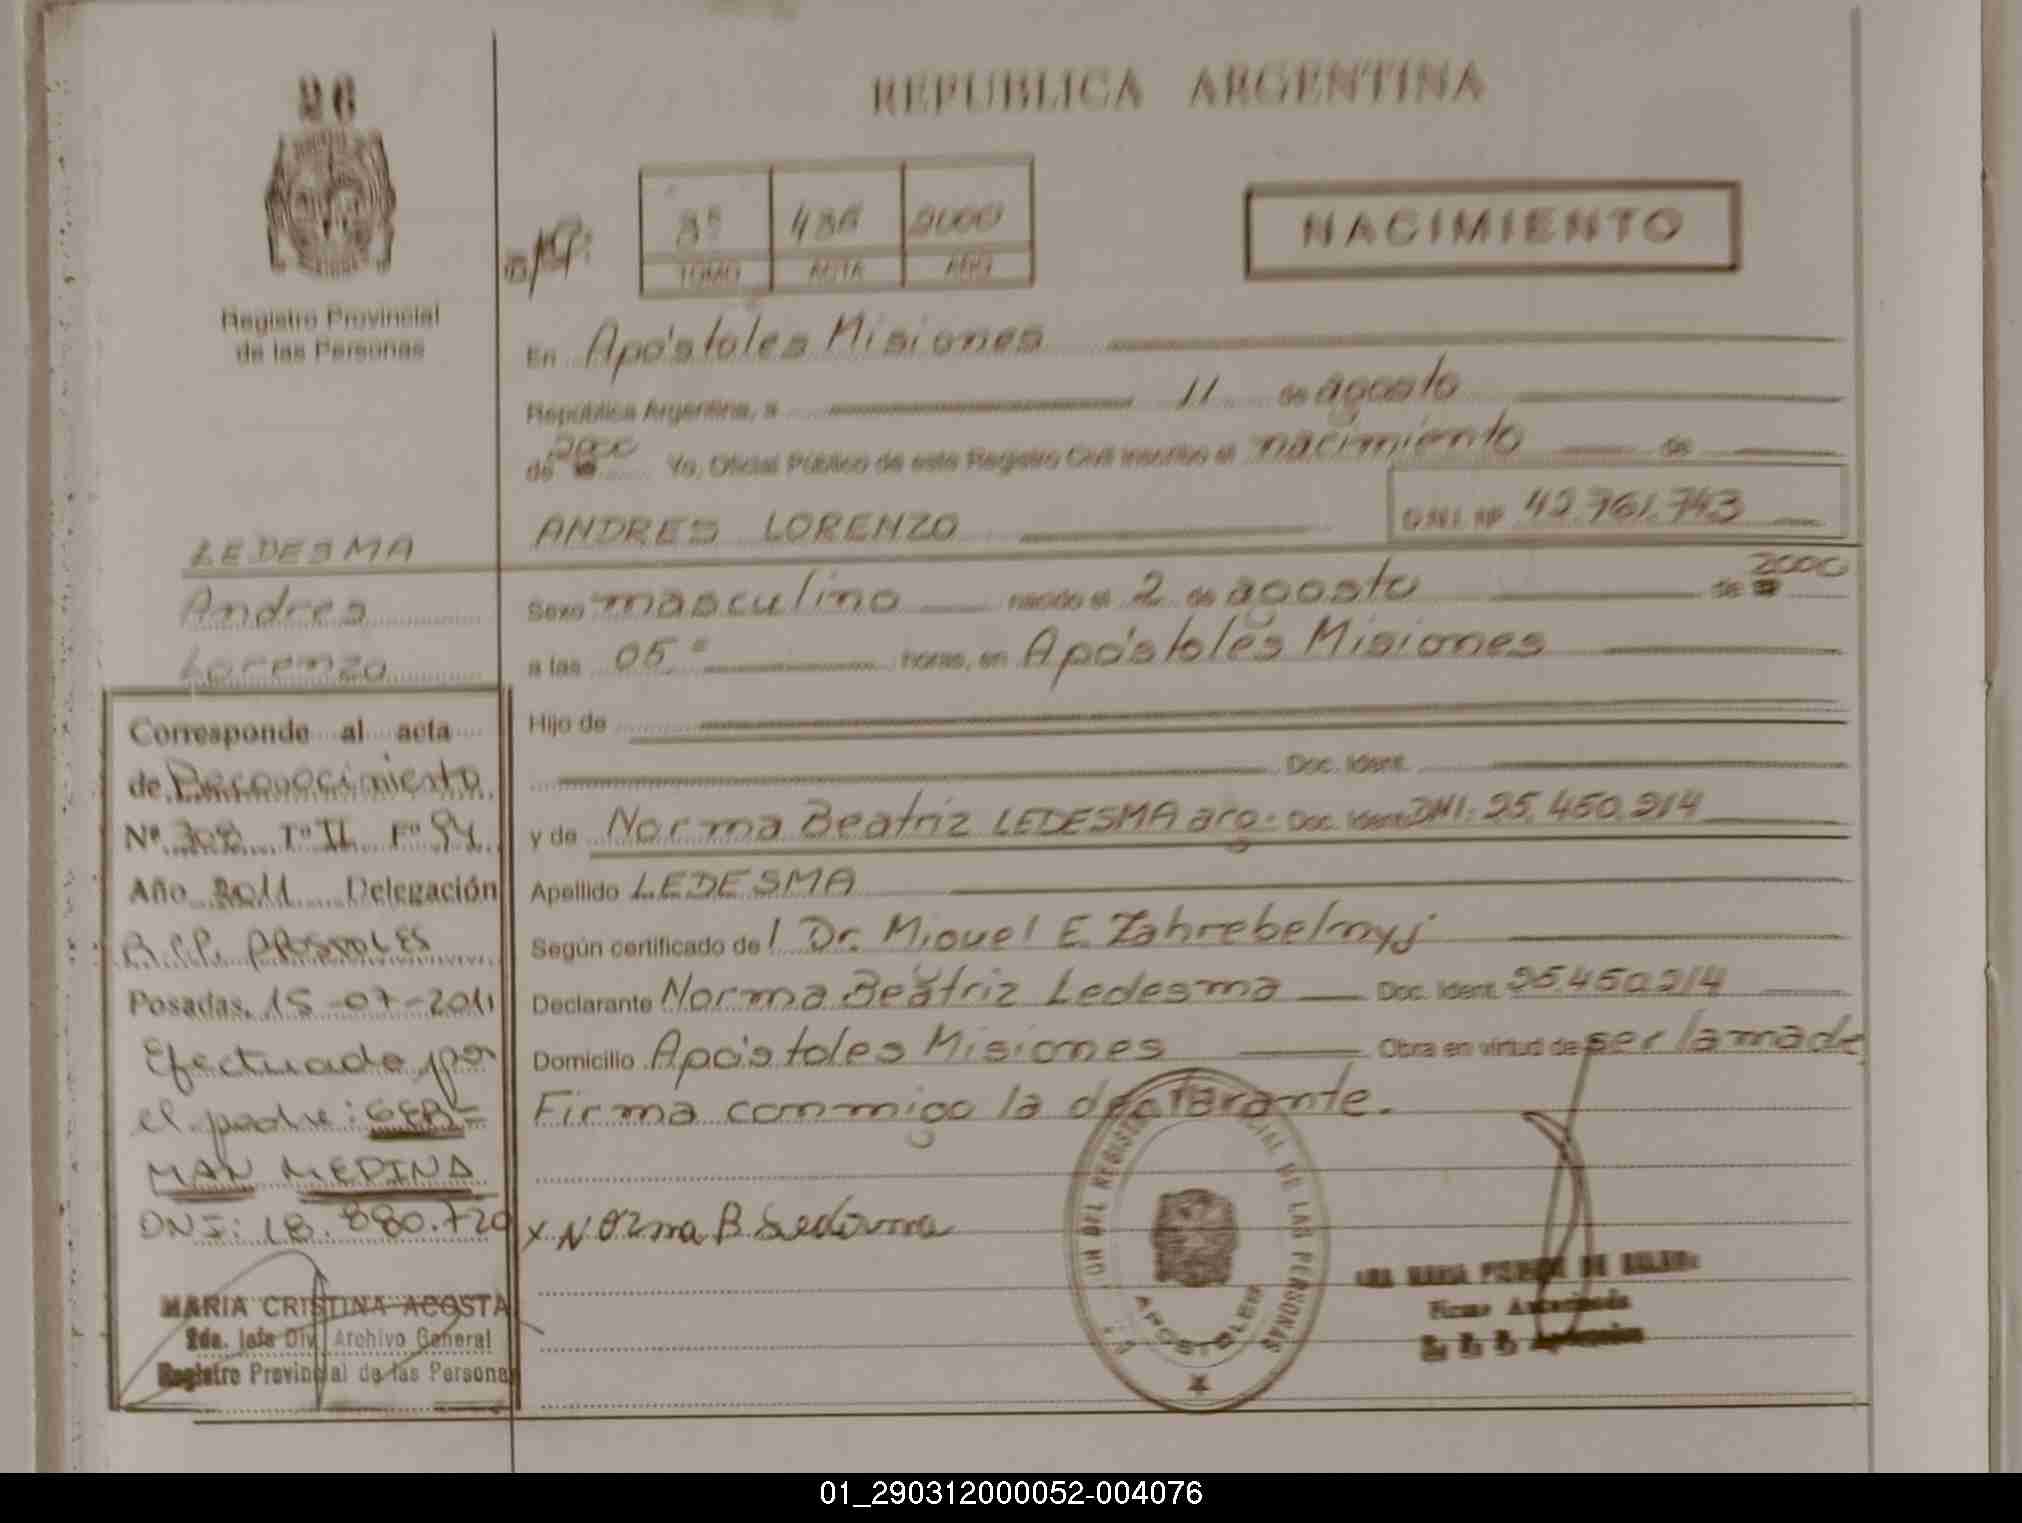 26
REPUBLICA ARGENTINA
Registro Provincial
de las Personas
2000
TOMO ACTA AÑO
NACIMIENTO
En Apóstoles Misiones
República Argentina, a 11 de agosto
de 2000 Yo, Oficial Público de este Registro Civil inscribo el nacimiento de
ANDRES LORENZO D.N.I. Nº 42.761.743
LEDESMA
Andres
Lorenzo
Sexo masculino nacido el 2 de agosto de 2000
a las 05 horas, en Apóstoles Misiones
Hijo de
Doc. Ident.
y de Norma Beatriz LEDESMA arg. Doc. Ident. DNI: 25.450.214
Apellido LEDESMA
Según certificado del Dr. Miguel E.
Declarante Norma Beatriz Ledesma Doc. Ident. 25.450.214
Domicilio Apóstoles Misiones Obra en virtud de ser la madre
Firma conmigo la declarante.
x Norma B Ledesma
Corresponde al acta
de Reconocimiento
Nº 308 Tº II Fº 94
Año 2011 Delegación
APOSTOLES
Posadas, 15-07-2011
Efectuado por
el padre: GER-
MAN MEDINA
DNI: 18.880.720
MARIA CRISTINA ACOSTA
2da. Jefe Div. Archivo General
Registro Provincial de las Personas
DEL REGISTRO PROVINCIAL DE LAS PERSONAS
APOSTOLES
Firma Autorizada
01_290312000052-004076